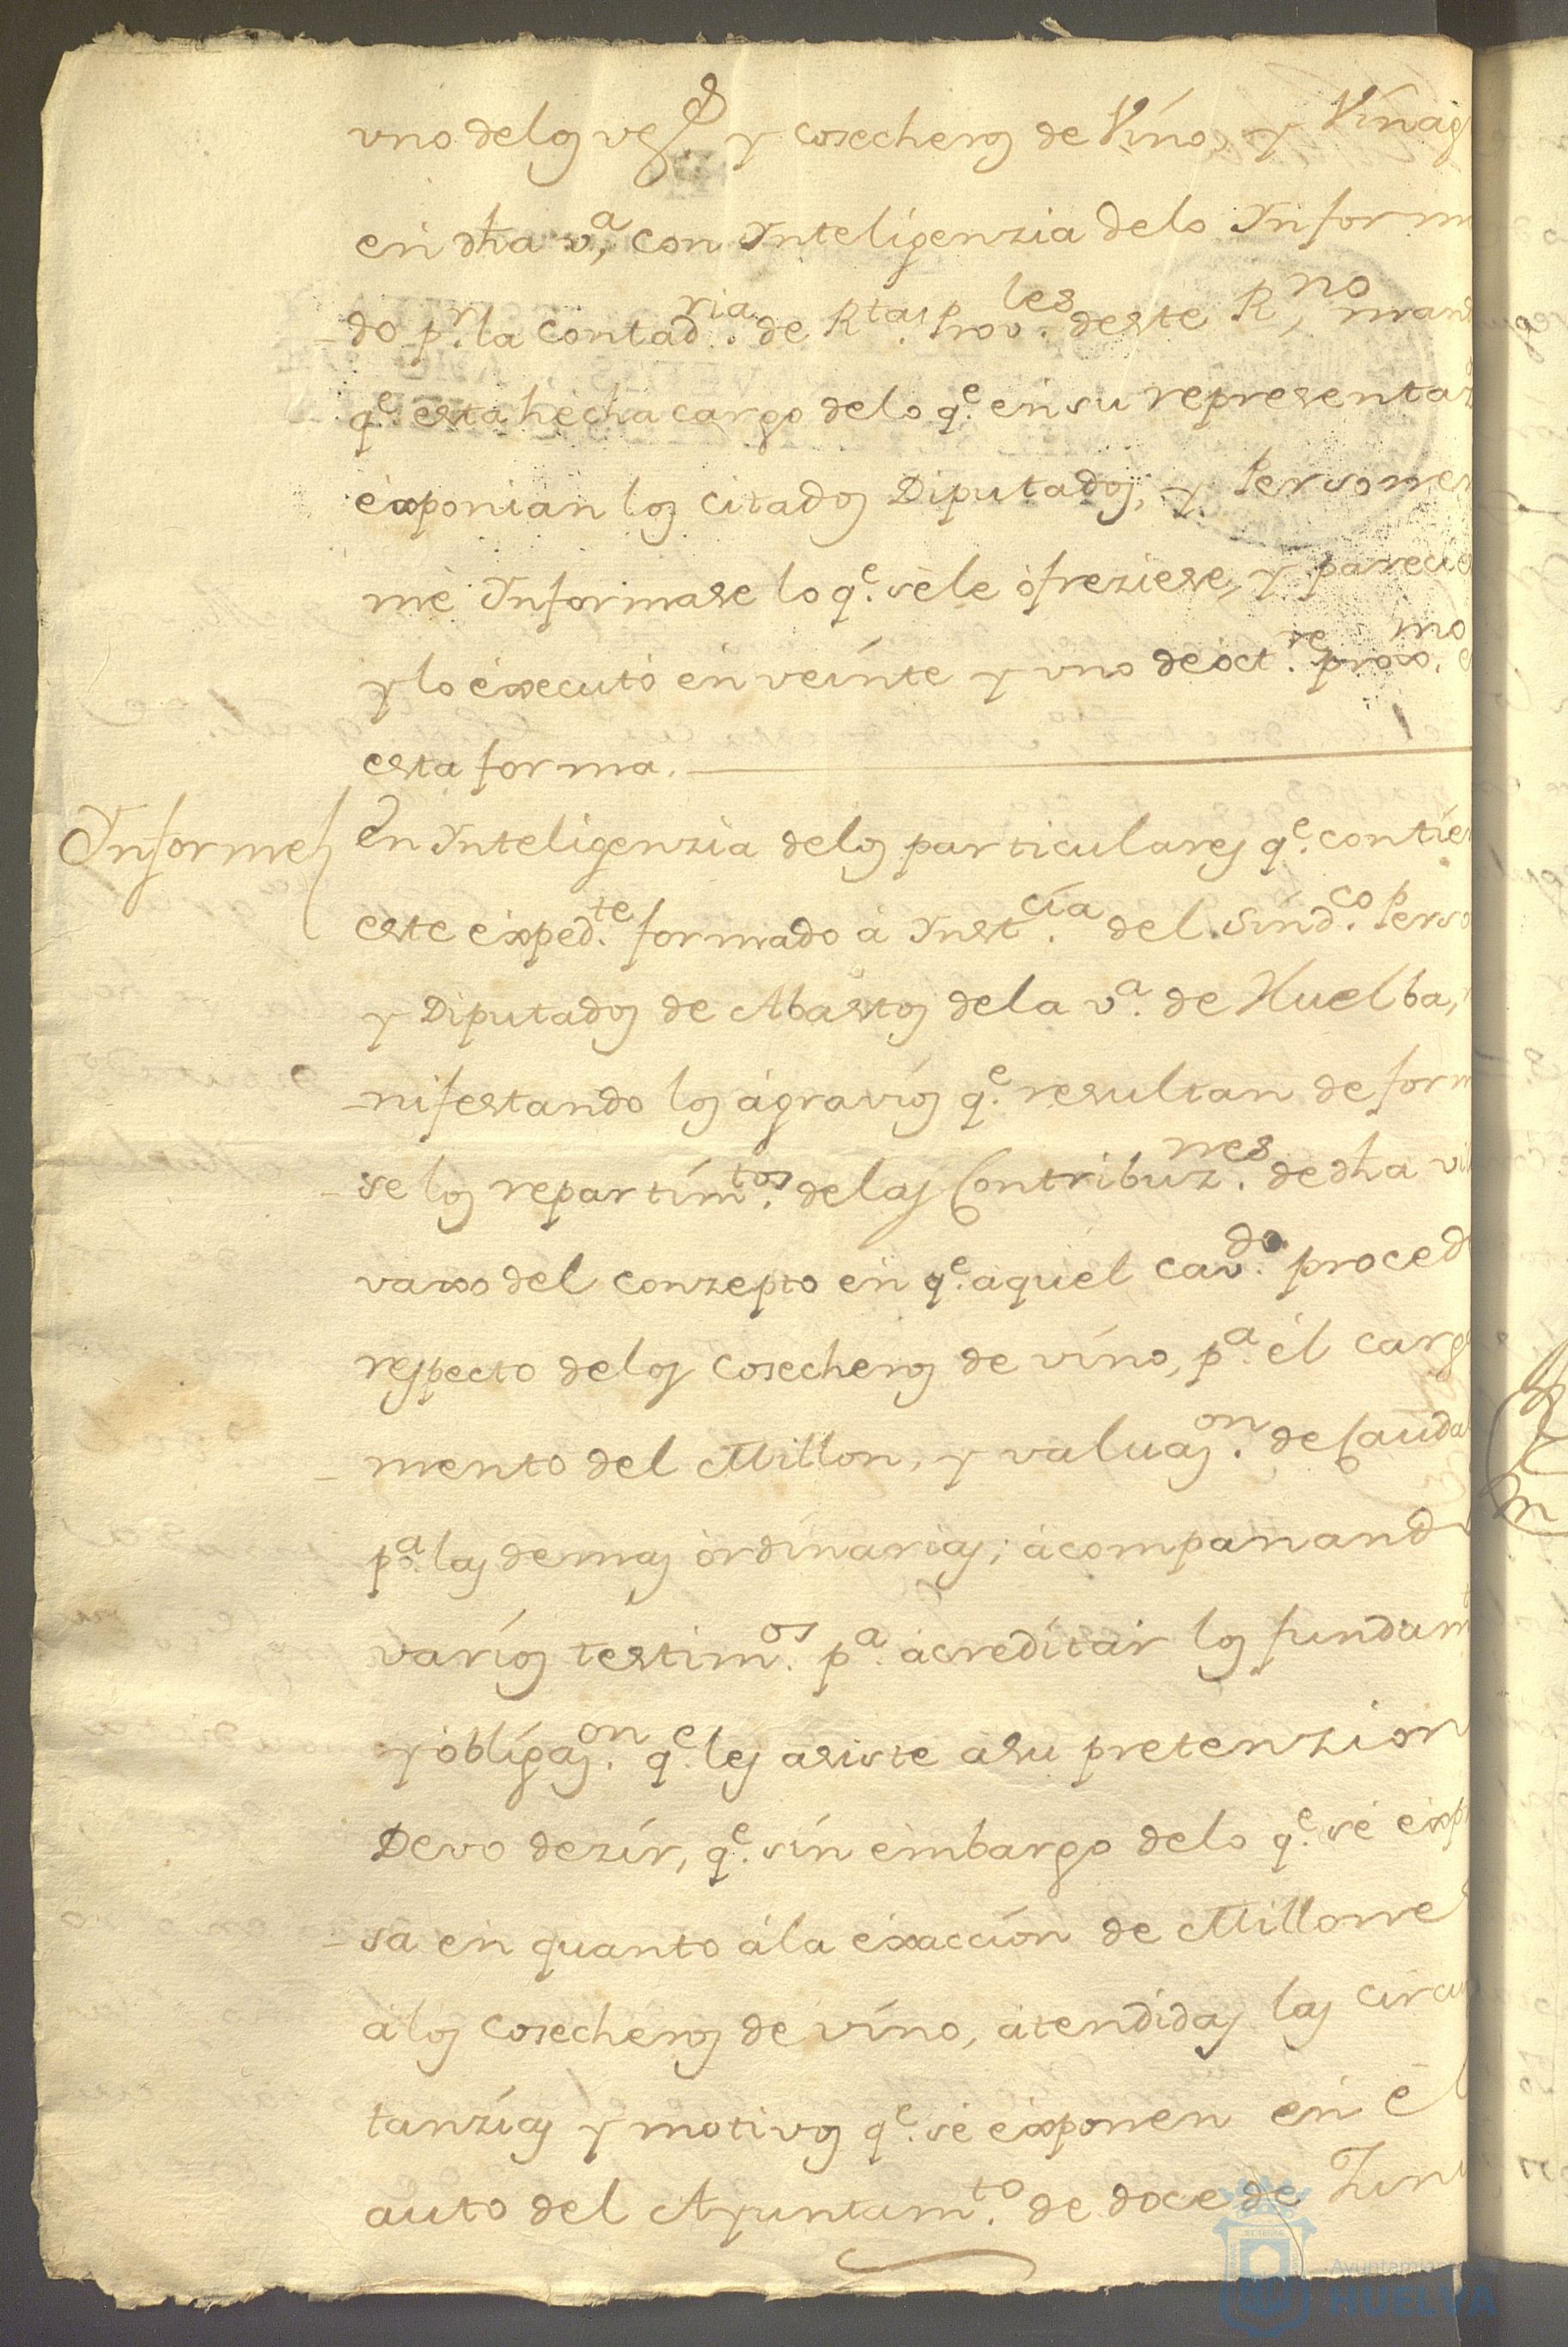 uno delos vẽs. y cosecheros de Víno, y Vínag
en dha v.ª, con Inteligenzia delo Inform
do p.r la contad.ria de Rtas. Prov.les deste R.no, mand
q.e esta hecha cargo delo q.e en su representaz
exponian los citados Diputados, y Persone
me Informase lo q.e sele ofreziese, y parecie
y lo executó en veínte y uno de oct.re proxo.mo, e
esta forma.
Informe
En Inteligenzia delos particulares q.e contíe
este exped.te formado à Inst.cía del Sínd.co Perso
y Diputados de Abastos dela v.ª de Huelba,
nifestando los ágravíos q.e resultan de form
se los repartím.tos delas Contribuz.nes de dha vil
vaxo del conzepto en q.e aquel cav.do proced
respecto delos cosecheros de víno, p.ª él carg
mento del Millon, y valuaz.on de Cauda
p.ª las demas órdínarias; ácompanand
varíos testim.os p.ª ácredítar los fundam
y óblígaz.on q.e les asiste asu pretenzion
Devo dezír, q.e sín embargo delo q.e sé exp
sa en quanto ála éxaccíon de Millone
á los cosecheros de víno, átendídas las círcu
tanzías y motivos q.e sé exponen en él
auto del Ayuntam.to de doce de Jun
Ayuntamie
HUELVA